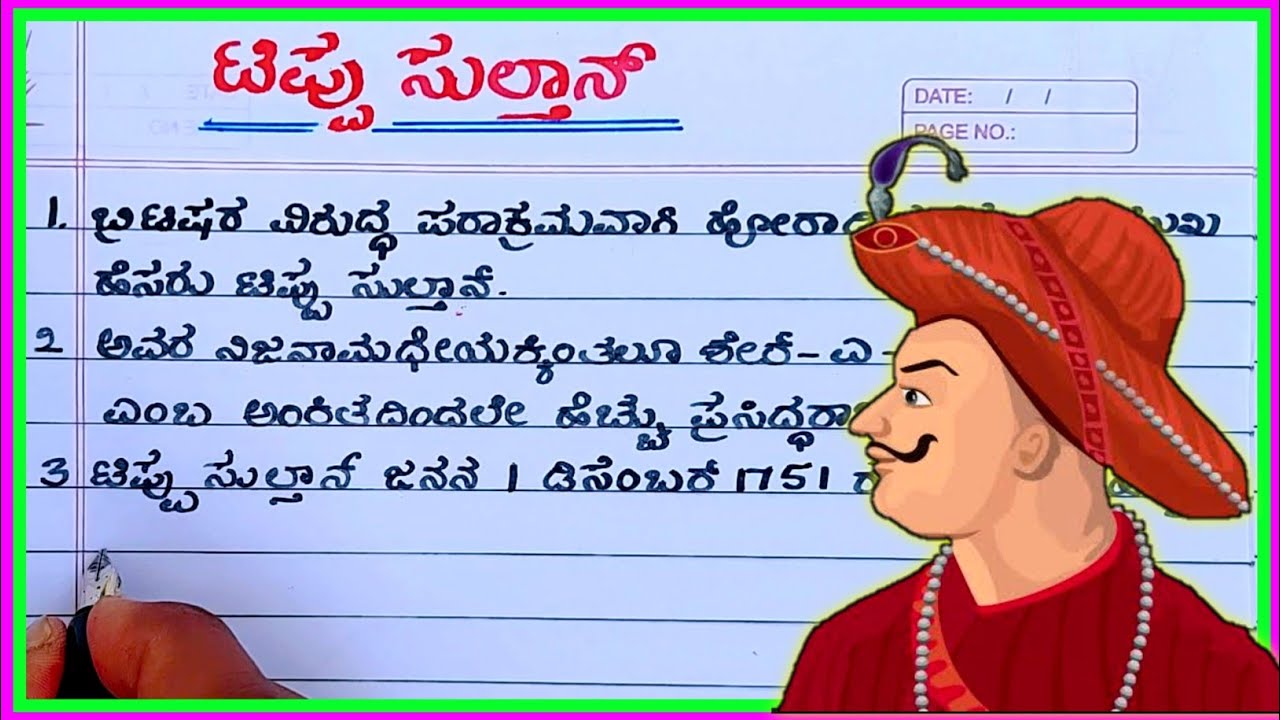 ಟಿಪ್ಪು ಸುಲ್ತಾನ್
DATE: / /
PAGE NO.:
1. ಬ್ರಿಟಿಷರ ವಿರುದ್ಧ ಪರಾಕ್ರಮವಾಗಿ
ಹೆಸರು ಟಿಪ್ಪು ಸುಲ್ತಾನ್.
2 ಅವರ ನಿಜನಾಮಧೇಯಕ್ಕಿಂತಲೂ ಶೇರ್-ಎ-
ಎಂಬ ಅಂಕಿತದಿಂದಲೇ ಹೆಚ್ಚು
3 ಟಿಪ್ಪು ಸುಲ್ತಾನ್ ಜನನ 1 ಡಿಸೆಂಬರ್ 1751